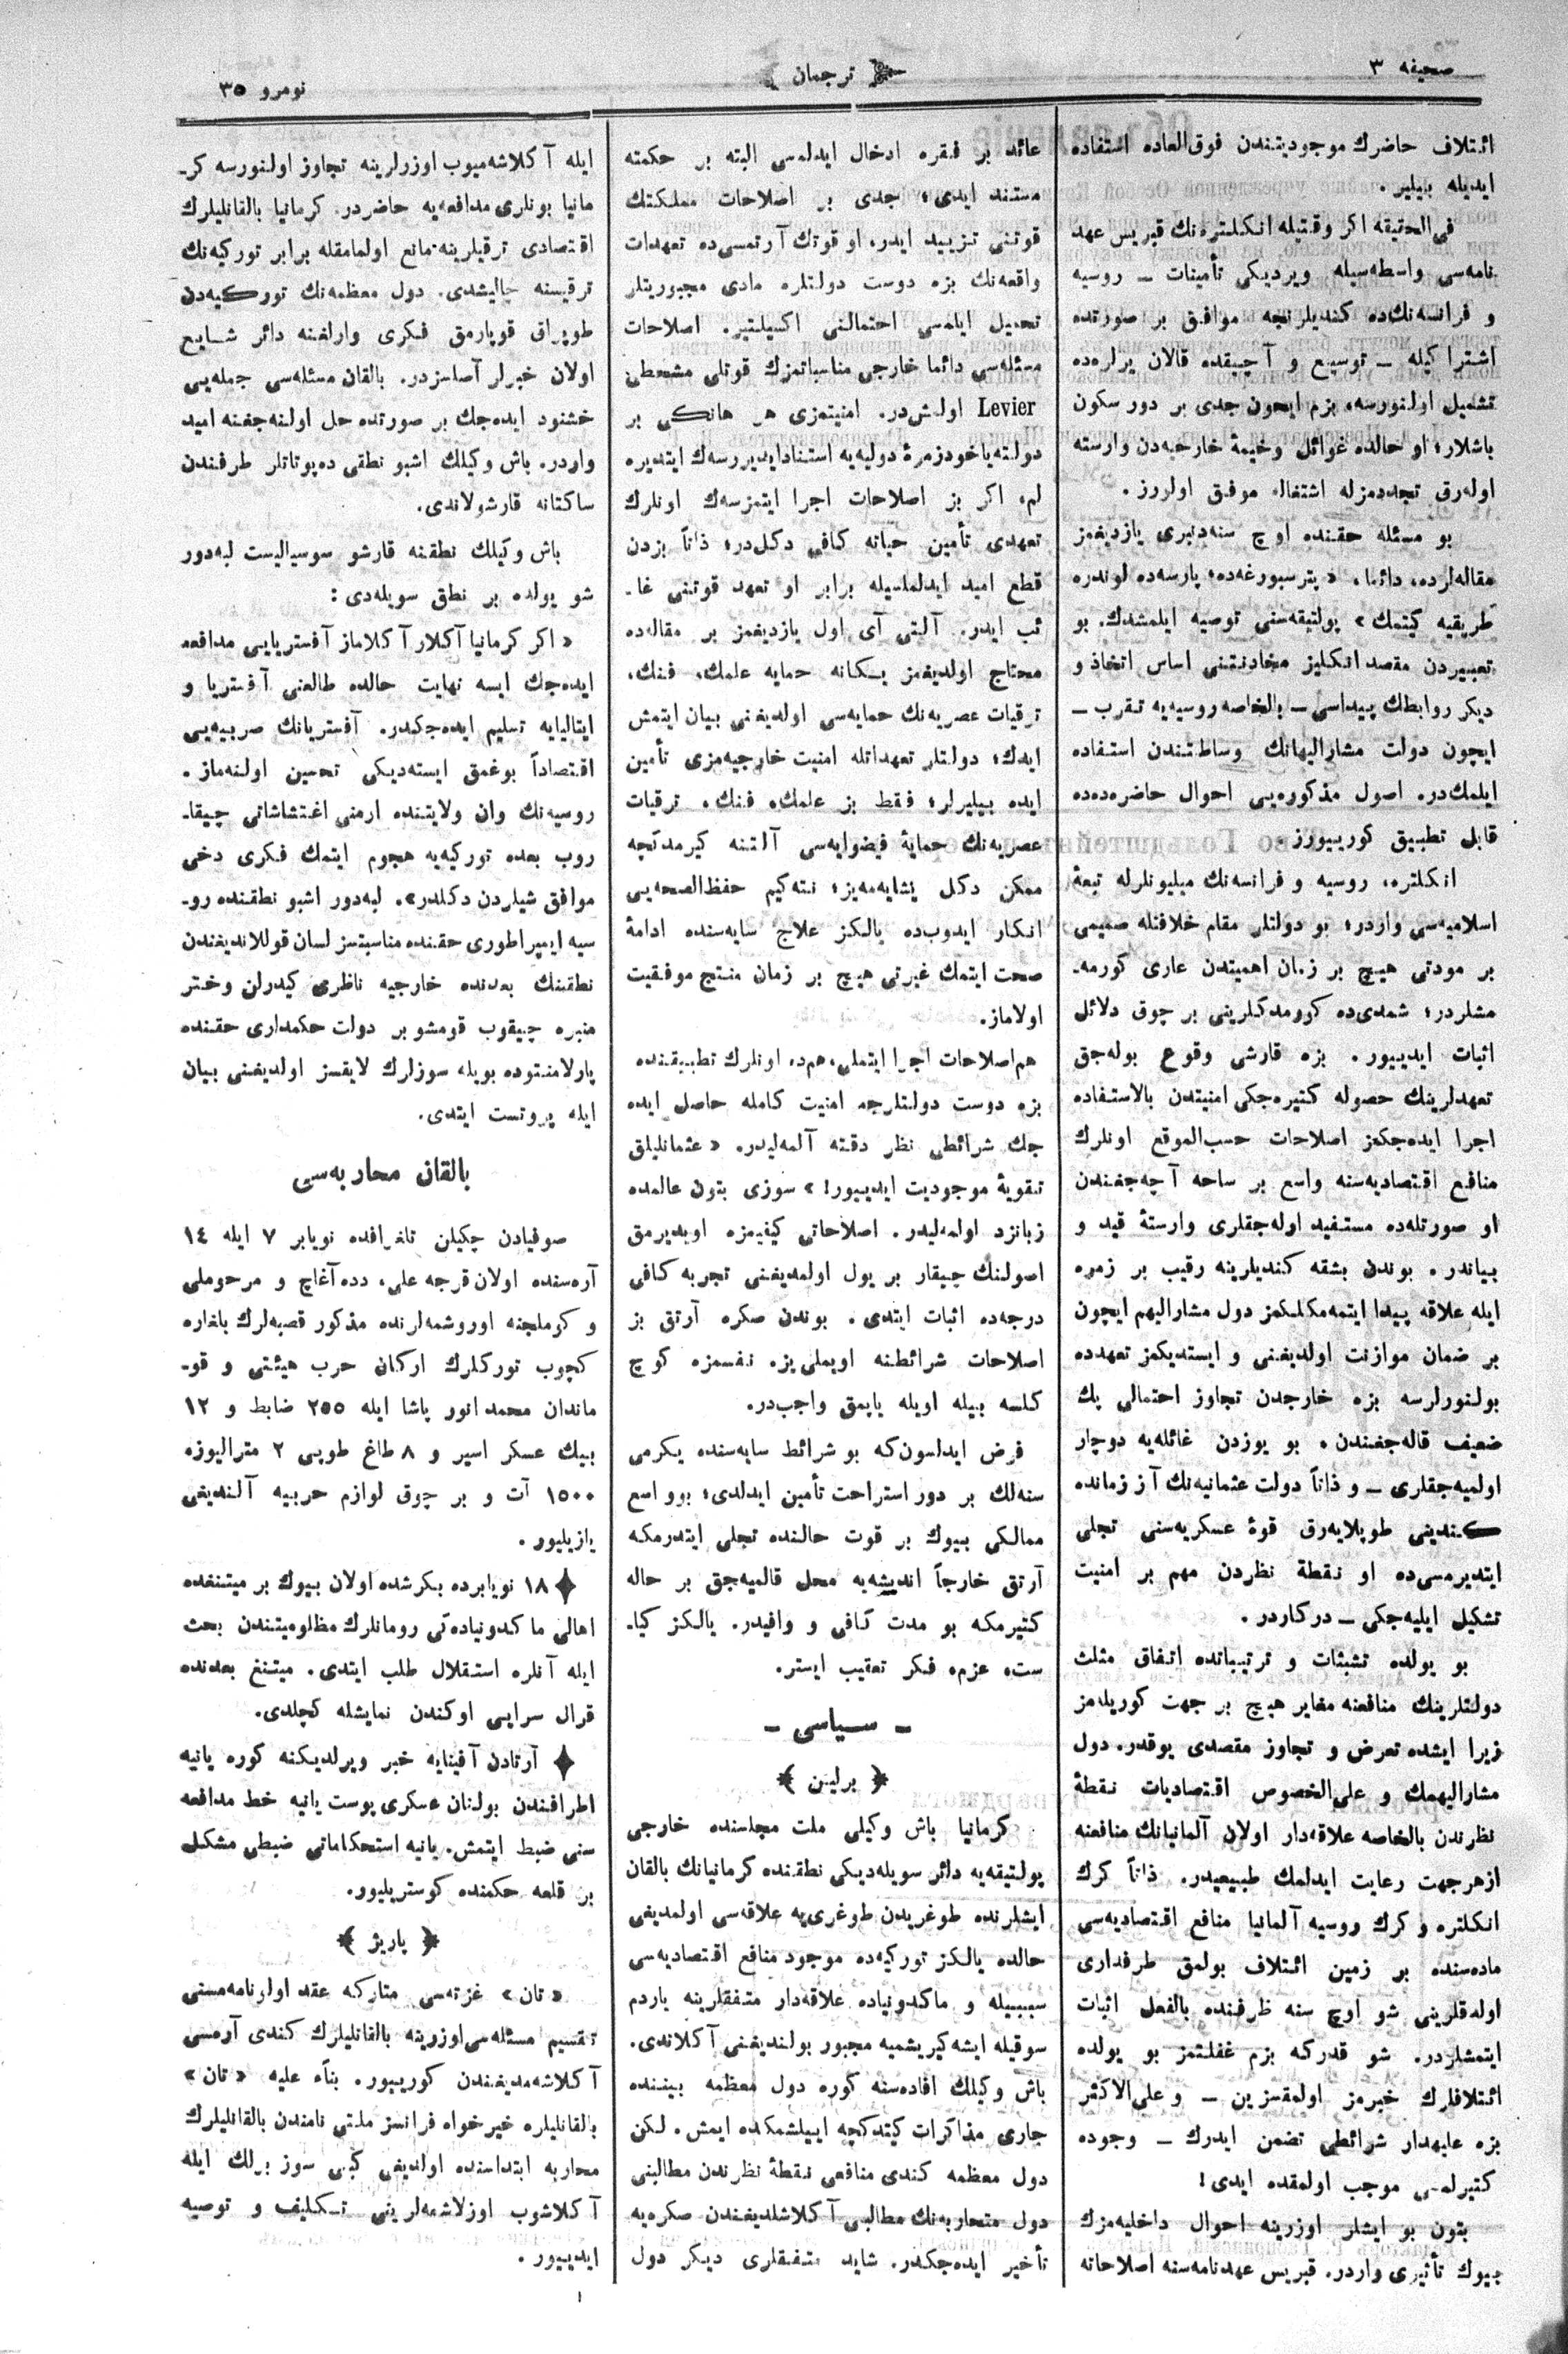 صحیفه ٣
ترجمان
نومرو ٣٥
ائتلاف حاضرك موجودیتندن فوق‌العاده استفاده
ایدیله بیلیر.
فی‌الحقیقه اكر وقتیله انكلتره‌نك قبریس عهد
نامه‌سی واسطه‌سیله ویردیكی تأمینات ــ روسیه
و فرانسه‌نك‌ده كندیلرنجه موافق بر صورتده
اشتراكیله ــ توسیع و آچیقده قالان یرلره‌ده
تشمیل اولنورسه، بزم ایچون جدی بر دور سكون
باشلار؛ او حالده غوائل وخیمهٔ خارجیه‌دن وارسته
اوله‌رق تجددمزله اشتغاله موفق اولورز.
بو مسئله حقنده اوچ سنه‌دنبری یازدیغمز
مقاله‌لرده، دائما، «پترسبورغه‌ده، پارسه‌ده لوندره
طریقیه كیتمك» پولتیقه‌سنی توصیه ایلمشدك. بو
تعبیردن مقصد انكلیز مخادنتنی اساس اتخاذ و
دیكر روابطك پیداسی ــ بالخاصه روسیه‌یه تقرب ــ
ایچون دولت مشارالیهانك وساطتندن استفاده
ایلمك‌در. اصول مذكوره‌یی احوال حاضره‌ده‌ده
قابل تطبیق كوریيورز.
انكلتره، روسیه و فرانسه‌نك میلیونلرله تبعهٔ
اسلامیه‌سی واردر؛ بو دولتلر مقام خلافتله صمیمی
بر مودتی هیچ بر زمان اهمیتدن عاری كورمه‌ـ
مشلردر؛ شمدی‌ده كورمدكلرینی بر چوق دلائل
اثبات ایدیيور. بزه قارشی وقوع بوله‌جق
تعهدلرینك حصوله كتیره‌جكی امنیتدن بالاستفاده
اجرا ایده‌جكمز اصلاحات حسب‌الموقع اونلرك
منافع اقتصادیه‌سنه واسع بر ساحه آچه‌جغندن
او صورتله‌ده مستفید اوله‌جقلری وارستهٔ قید و
بیاندر. بوندن بشقه كندیلرینه رقیب بر زمره
ایله علاقه پیدا ایتمه‌مكلكمز دول مشارالیهم ایچون
بر ضمان موازنت اولدیغنی و ایستدیكمز تعهدده
بولنورلرسه بزه خارجدن تجاوز احتمالی پك
ضعیف قاله‌جغندن. بو یوزدن غائله‌یه دوچار
اولمیه‌جقلری ــ و ذاتاً دولت عثمانیه‌نك آز زمانده
كندینی طوپلایه‌رق قوهٔ عسكریه‌سنی تجلی
ایتدیرمسی‌ده او نقطهٔ نظردن مهم بر امنیت
تشكیل ایلیه‌جكی ــ دركاردر.
بو یولده تشبثات و ترتیباتده اتفاق مثلث
دولتلرینك منافعنه مغایر هیچ بر جهت كوریله‌مز
زیرا ایشده تعرض و تجاوز مقصدی یوقدر. دول
مشارالیهمك و علی‌الخصوص اقتصادیات نقطهٔ
نظرندن بالخاصه علاقه‌دار اولان آلمانیانك منافعنه
ازهرجهت رعایت ایدلمك طبیعیدر. ذاتاً كرك
انكلتره و كرك روسیه آلمانیا منافع اقتصادیه‌سی
ماده‌سنده بر زمین ائتلاف بولمق طرفداری
اولدقلرینی شو اوچ سنه ظرفنده بالفعل اثبات
ایتمشلردر. شو قدركه بزم غفلتمز بو یولده
ائتلافلرك خبرمز اولمقسزین ــ و علی‌الاكثر
بزه علیهدار شرائطی تضمن ایدرك ــ وجوده
كتیرلمسی موجب اولمقده ایدی!
بتون بو ایشلر اوزرینه احوال داخلیه‌مزك
بیوك تأثیری واردر. قبریس عهدنامه‌سنه اصلاحاته
عائد بر فقره ادخال ایدلمسی البته بر حكمته
مستند ایدی؛ جدی بر اصلاحات مملكتك
قوتنی تزیید ایدر، او قوتك آرتمسی‌ده تعهدات
واقعه‌نك بزه دوست دولتلره مادی مجبوریتلر
تحمیل ایلمسی احتمالنی اكسیلتیر. اصلاحات
مسئله‌سی دائما خارجی مناسباتمزك قوتلی مشعطی
Levier اولمش‌در. امنیتمزی هر هانكی بر
دولته یاخود زمرهٔ دولیه‌یه استناد ایدیررسه‌ك ایتدیره
لم، اكر بز اصلاحات اجرا ایتمزسه‌ك اونلرك
تعهدی تأمین حیاته كافی دكل‌در؛ ذاتاً بزدن
قطع امید ایدلمسیله برابر او تعهد قوتنی غا‌ـ
ئب ایدر. آلتی آی اول یازدیغمز بر مقاله‌ده
محتاج اولدیغمز یكانه حمایه علمك، فنك،
ترقیات عصریه‌نك حمایه‌سی اولدیغنی بیان ایتمش
ایدك؛ دولتلر تعهداتله امنیت خارجیه‌مزی تأمین
ایده بیلیرلر؛ فقط بز علمك، فنك، ترقیات
عصریه‌نك حمایهٔ فیضوایه‌سی آلتنه كیرمدكجه
ممكن دكل یشایه‌مه‌یز؛ نته‌كیم حفظ‌الصحه‌یی
انكار ایدوب‌ده یالكز علاج سایه‌سنده ادامهٔ
صحت ایتمك غیرتی هیچ بر زمان منتج موفقیت
اولاماز.
هم اصلاحات اجرا ایتملی، هم‌ده اونلرك تطبیقنده
بزه دوست دولتلرجه امنیت كامله حاصل ایده
جك شرائطی نظر دقته آلمه‌لیدر. «عثمانلیلق
تقویهٔ موجودیت ایدیيور!» سوزی بتون عالمده
زبانزد اولمه‌لیدر. اصلاحاتی كیفیمزه اویدیرمق
اصولنك چیقار بر یول اولمدیغنی تجربه كافی
درجه‌ده اثبات ایتدی. بوندن صكره آرتق بز
اصلاحات شرائطنه اویملی‌یز. نفسمزه كوچ
كلسه بیله اویله یاپمق واجب‌در.
فرض ایدلسون‌كه بو شرائط سایه‌سنده یكرمی
سنه‌لك بر دور استراحت تأمین ایدلدی؛ بو واسع
ممالكی بیوك بر قوت حالنده تجلی ایتدرمكه
آرتق خارجاً اندیشه‌یه محل قالمیه‌جق بر حاله
كتیرمكه بو مدت كافی و وافیدر. یالكز كیا‌ـ
ست، عزم، فكر تعقیب ایستر.
ــ سیاسی ــ
﴿ برلین ﴾
كرمانیا باش وكیلی ملت مجلسنده خارجی
پولتیقه‌یه دائر سویله‌دیكی نطقنده كرمانیانك بالقان
ایشلرنده طوغریدن طوغری‌یه علاقه‌سی اولمدیغی
حالده یالكز توركیه‌ده موجود منافع اقتصادیه‌سی
سببیله و ماكدونیاده علاقه‌دار متفقلرینه یاردم
سوقیله ایشه كیریشمیه مجبور بولندیغنی آكلاندی.
باش وكیلك افاده‌سنه كوره دول معظمه بیننده
جاری مذاكرات كیتدكچه ایییلشمكده ایمش. لكن
دول معظمه كندی منافعی نقطهٔ نظرندن مطالبنی
دول متحاربه‌نك مطالبی آكلاشلدیغندن صكره‌یه
تأخیر ایده‌جكدر. شاید متفقلری دیكر دول
ایله آكلاشه‌میوب اوزرلرینه تجاوز اولنورسه كرـ
مانیا بونلری مدافعه‌یه حاضردر. كرمانیا بالقانلیلرك
اقتصادی ترقیلرینه مانع اولمامقله برابر توركیه‌نك
ترقیسنه چالیشدی. دول معظمه‌نك توركیه‌دن
طوپراق قوپارمق فكری وارلغنه دائر شایع
اولان خبرلر آساسزدر. بالقان مسئله‌سی جمله‌یی
خشنود ایده‌جك بر صورتده حل اولنه‌جغنه امید
واردر. باش وكیلك اشبو نطقی ده‌پوتاتلر طرفندن
ساكتانه قارشولاندی.
باش وكیلك نطقنه قارشو سوسیالیست لبه‌دور
شو یولده بر نطق سویله‌دی:
«اكر كرمانیا آكلار آكلاماز آفستریایی مدافعه
ایده‌جك ایسه نهایت حالده طالعنی آفستریا و
ایتالیایه تسلیم ایده‌جكدر. آفستریانك صربیه‌یی
اقتصاداً بوغمق ایسته‌دیكی تحسین اولنه‌ماز.
روسیه‌نك وان ولایتنده ارمنی اغتشاشاتی چیقا‌ـ
روب بعده توركیه‌یه هجوم ایتمك فكری دخی
موافق شیلردن دكلدر». لبه‌دور اشبو نطقنده روـ
سیه ایمپراطوری حقنده مناسبتسز لسان قوللاندیغندن
نطقنك بعدنده خارجیه ناظری كیدرلن وختر
منبره چیقوب قومشو بر دولت حكمداری حقنده
پارلامنتوده بویله سوزلرك لایقسز اولدیغنی بیان
ایله پروتست ایتدی.
بالقان محاربه‌سی
صوفیادن چكیلن تلغرافده نویابر ٧ ایله ١٤
آره‌سنده اولان قرجه علی، دده آغاچ و مرحوملی
و كوملجنه اوروشمه‌لرنده مذكور قصبه‌لرك بلغاره
كچوب توركلرك اركان حرب هیئتی و قوـ
ماندان محمد انور پاشا ایله ٢٥٥ ضابط و ١٢
بیك عسكر اسیر و ٨ طاغ طوپی ٢ مترالیوزه
١٥٠٠ آت و بر چوق لوازم حربیه آلندیغی
یازیلیور.
✦ ١٨ نویابرده بكرشده اولان بیوك بر میتنغده
اهالی ماكدونیاده‌كی رومانلرك مظلومیتندن بحث
ایله آنلره استقلال طلب ایتدی. میتنغ بعدنده
قرال سرایی اوكندن نمایشله كچلدی.
✦ آرتادن آفینایه خبر ویرلدیكنه كوره یانیه
اطرافندن بولنان عسكری پوست یانیه خط مدافعه
سنی ضبط ایتمش. یانیه استحكاماتی ضبطی مشكل
بر قلعه حكمنده كوستریلیور.
﴿ پاریژ ﴾
«تان» غزته‌سی متاركه عقد اولرنامه‌مسنی
تقسیم مسئله‌سی اوزرینه بالقانلیلرك كندی آره‌سی
آكلاشه‌مدیغندن كوریيور. بناً علیه «تان»
بالقانلیلره خیرخواه فرانسز ملتی نامندن بالقانلیلرك
محاربه ابتداسنده اولدیغی كبی سوز برلك ایله
آكلاشوب اوزلاشمه‌لرینی تكلیف و توصیه
ایدیيور.